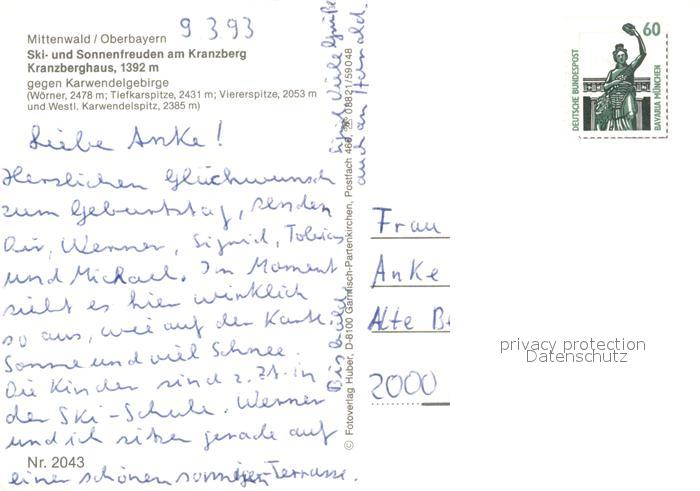 9.3.93
Mittenwald / Oberbayern
Ski- und Sonnenfreuden am Kranzberg
Kranzberghaus, 1392 m
gegen Karwendelgebirge
(Wörner, 2478 m; Tiefkarspitze, 2431 m; Viererspitze, 2053 m
und Westl. Karwendelspitz, 2385 m)
Liebe Anke!
Herzlichen Glückwunsch
zum Geburtstag, senden
Dir, Werner, Sigrid, Tobias
und Michael. Im Moment
sieht es hier wirklich
so aus, wie auf der Karte.
Sonne und viel Schnee.
Die Kinder sind z.Zt. in
der Ski-Schule. Werner
und ich sitzen gerade auf
einer schönen sonnigen Terrasse.
Bis bald
Sigrid Viele Grüße
auch an Harald.
Nr. 2043
© Fotoverlag Huber, D-8100 Garmisch-Partenkirchen, Postfach 466, ☏ 08821/59048
DEUTSCHE BUNDESPOST
60
BAVARIA MÜNCHEN
Frau
Anke
Alte
2000
privacy protection
Datenschutz